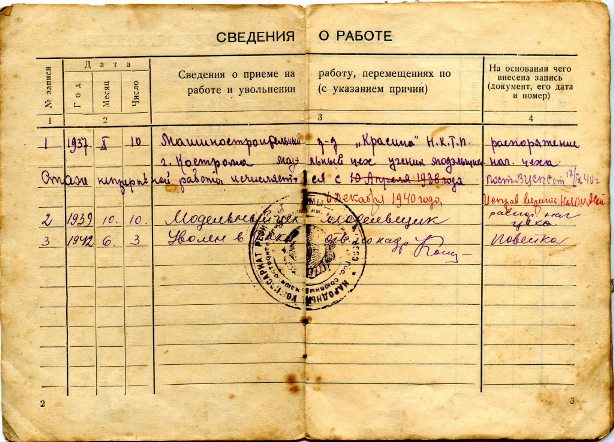 СВЕДЕНИЯ О РАБОТЕ
№ записи
Дата
Год
Месяц
Число
Сведения о приеме на работу, перемещениях по
работе и увольнении (с указанием причин)
На основании чего
внесена запись
(документ, его дата
и номер)
1 2 3 4
1 1937 X 10 Машиностроительный з-д "Красина" Н.К.Т.П. распоряжение
г. Кострома модельный цех ученик модельщика нач. цеха
Стаж непрерывной работы исчисляется с 10 Апреля 1938 года
декабря 1940 года
2 1939 10. 10. Модельный цех модельщик
нач
цеха
3 1942 6. 3 Уволен в повестка
НАРОДНЫЙ КОМИССАРИАТ
2
3